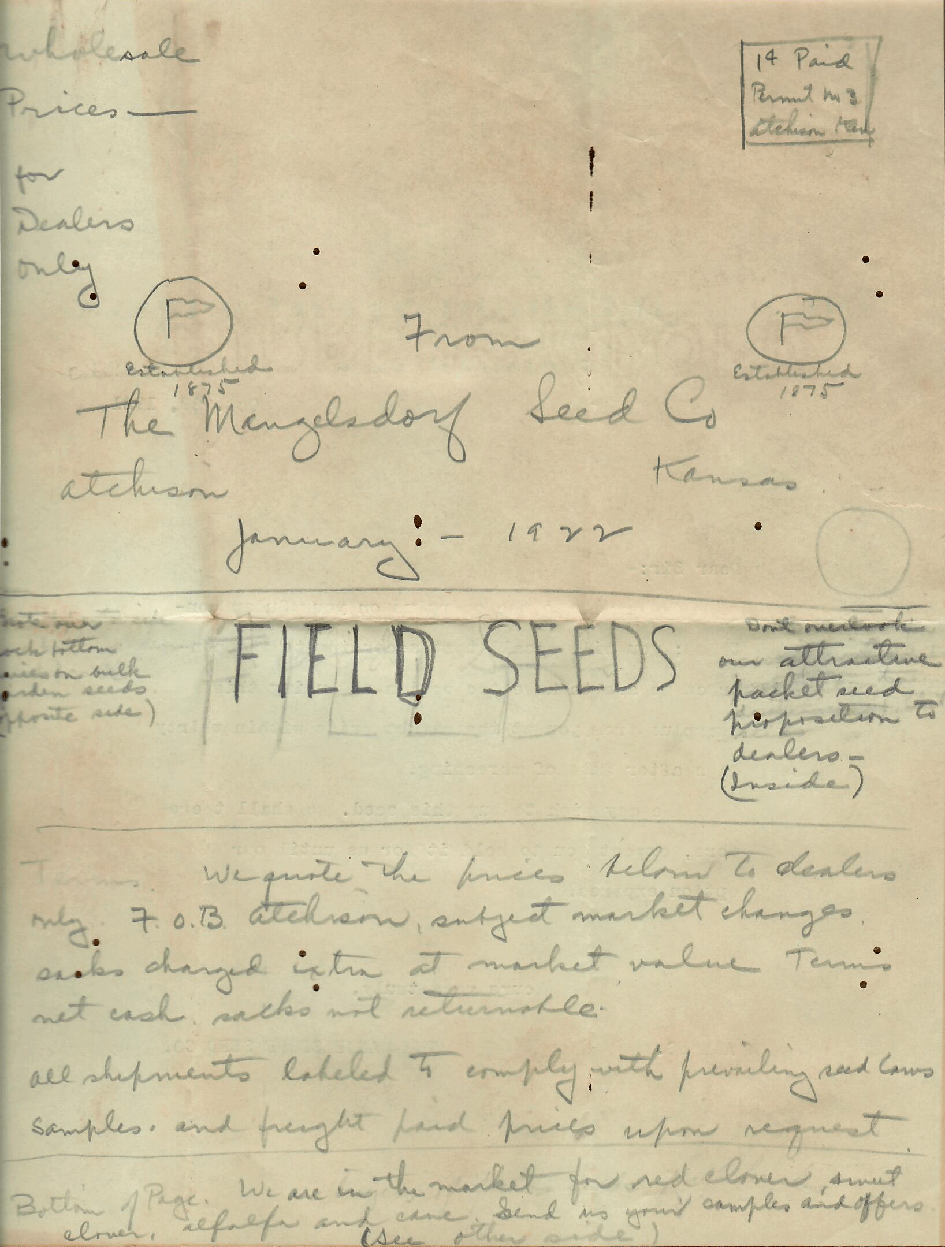 wholesale
Prices —
for
Dealers
only
1¢ Paid
Permit No 3
Atchison Kan
F
Established
1875
From
F
Established
1875
The Mangelsdorf Seed Co
Atchison
Kansas
January - 1922
our
bottom
on bulk
seeds
opposite side)
FIELD SEEDS
Don't overlook
our attractive
packet seed
proposition to
dealers -
(Inside)
Terms. We quote the prices below to dealers
only. F.O.B. Atchison, subject market changes.
sacks charged extra at market value Terms
net cash. sacks not returnable.
All shipments labeled to comply with prevailing seed laws
Samples. and freight paid prices upon request
Bottom of Page. We are in the market for red clover, sweet
clover, alfalfa and cane. Send us your samples and offers.
(See other side)